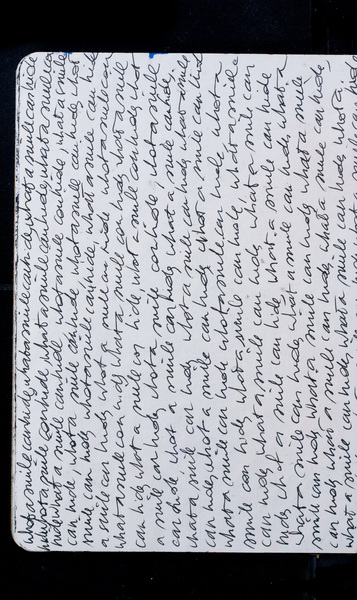 what a smile can hide, what a smile can hide, what a smile can hide
hide what a smile can hide, what a smile can hide, what a smile
hide what a smile can hide what a smile can hide, what a smile
can hide, what a smile can hide what a smile can hide what
smile can hide what a smile can hide, what a smile can hide
a smile can hide what a smile can hide what a smile can
what a smile can hide what a smile can hide what a smile
can hide what a smile can hide what a smile can hide what
a smile can hide what a smile can hide, what a smile
can hide what a smile can hide what a smile can hide.
what a smile can hide what a smile can hide what a smile
can hide what a smile can hide what a smile can hide
what a smile can hide what a smile can hide what a
smile can hide what a smile can hide, what a smile
can hide what a smile can hide what a smile can
hide what a smile can hide what a smile can hide
what a smile can hide what a smile can hide what a
smile can hide what a smile can hide what a smile
can hide what a smile can hide what a smile can hide,
what a smile can hide what a smile can hide what a